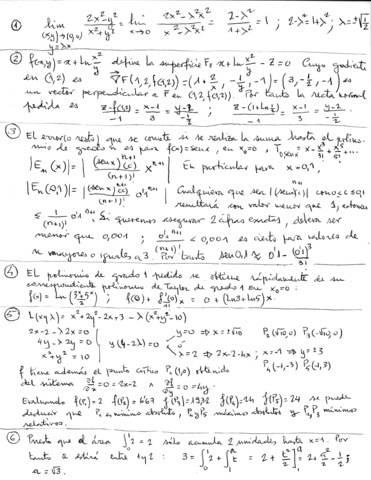 ① lim (x,y)→(0,0) y=λx 2x²-y² / x²+y² = lim x→0 2x²-λ²x² / x²+λ²x² = 2-λ² / 1+λ² = 1 ; 2-λ²=1+λ² ; λ=±√1/2
② f(x,y)=x+ln x²/y define la superficie F≡ x+ln x²/y - z=0 Cuyo gradiente
en (1,2) es ∇F(1,2,f(1,2)) = (1+2/x, -1/y, -1) = (3,-1/2,-1) es
un vector perpendicular a F en (1,2,f(1,2)). Por tanto la recta normal
pedida es z-f(1,2)/-1 = x-1/3 = y-2/-1/2 ; z-(1+ln 1/2)/-1 = x-1/3 = y-2/-1/2
③ El error (o resto) que se comete si se realiza la suma hasta el polino-
mio de grado n es para f(x)=senx, en x₀=0, T₀senx = x - x³/3! + x⁵/5! ...
|Eₙ(x)| = |(senx)ⁿ⁺¹(c)/(n+1)! xⁿ⁺¹| En particular para x=0,1,
|Eₙ(0,1)| = |(senx)ⁿ⁺¹(c)/(n+1)! 0'1ⁿ⁺¹| Cualquiera que sea |(senx)ⁿ⁺¹(c)| con 0≤c≤0,1
resultará con valor menor que 1, entonces
≤ 1/(n+1)! 0'1ⁿ⁺¹. Si queremos asegurar 2 cifras exactas, deberá ser
menor que 0,001 ; 0'1ⁿ⁺¹/(n+1)! < 0,001 es cierto para valores de
n mayores o iguales a 3. Por tanto sen0,1 ≈ 0'1 - (0'1)³/3!
④ El polinomio de grado 1 pedido se obtiene rápidamente de su
correspondiente polinomio de Taylor de grado 1 en x₀=0:
f(x) = ln(3ˣ5ˣ) ; f(0)+f'(0)x = 0+(ln3+ln5)x.
⑤ L(x,y,λ) = x²+2y²-2x+3-λ(x²+y²-10)
2x-2-λ2x=0
4y-λ2y=0 y(4-2λ)=0 y=0 ⇒ x=±√10 P₁(√10,0) P₂(-√10,0)
x²+y²=10 λ=2 ⇒ 2x-2=4x ; x=-1 ⇒ y=±3 P₃(-1,-3) P₄(-1,3)
f tiene además el punto crítico P₀(1,0) obtenido
del sistema ∂f/∂x=0=2x-2 ∧ ∂f/∂y=0=4y
Evaluando f(P₀)=2 f(P₁)=6'67 f(P₂)=19,32 f(P₃)=24 f(P₄)=24 se puede
deducir que P₀ es mínimo absoluto, P₃ y P₄ máximos absolutos y P₁,P₂ máximos
relativos.
⑥ Puesto que el área ∫₀¹2 = 2 sólo acumula 2 unidades hasta x=1. Por
tanto a estará entre 1 y 2 : 3 = ∫₀¹2 + ∫₁ᵃt = 2+[t²/2]₁ᵃ = 2+a²/2-1/2 ;
a=√3.